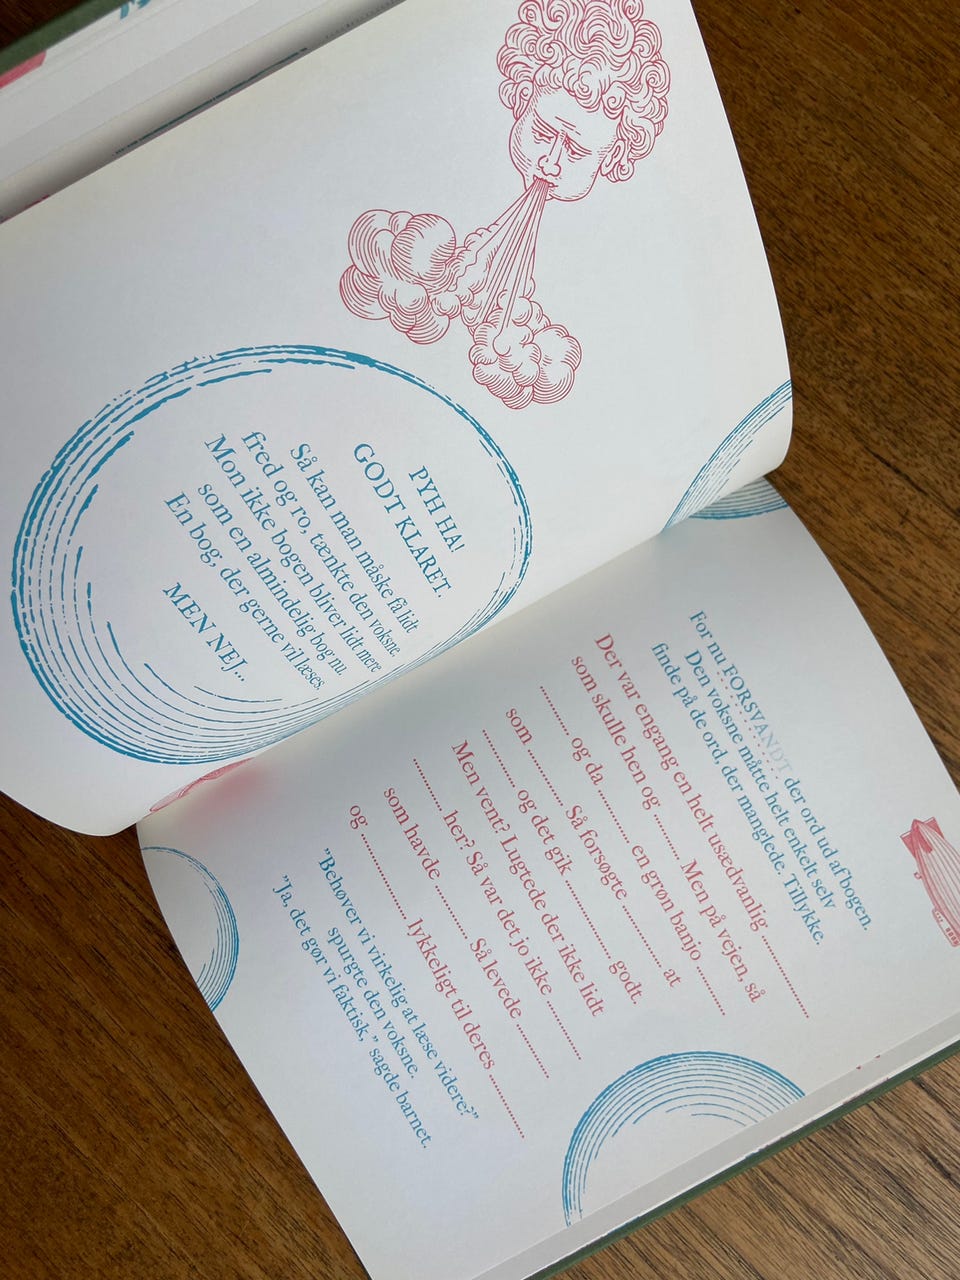 PYH HA!
GODT KLARET.
Så kan man måske få lidt
fred og ro, tænkte den voksne.
Mon ikke bogen bliver lidt mere
som en almindelig bog nu.
En bog, der gerne vil læses.
MEN NEJ...
For nu FORSVANDT der ord ud af bogen.
Den voksne måtte helt enkelt selv
finde på de ord, der manglede. Tillykke.
Der var engang en helt usædvanlig ....................
som skulle hen og .............. Men på vejen, så
.............. og da .............. en grøn banjo ..............
.................... Så forsøgte .............. at
som .............. og det gik .................... godt.
.................... Men vent? Lugtede der ikke lidt
.............. her? Så var det jo ikke ..............
som havde .................... Så levede ....................
og .................... lykkeligt til deres ....................
"Behøver vi virkelig at læse videre?"
spurgte den voksne.
"Ja, det gør vi faktisk," sagde barnet.